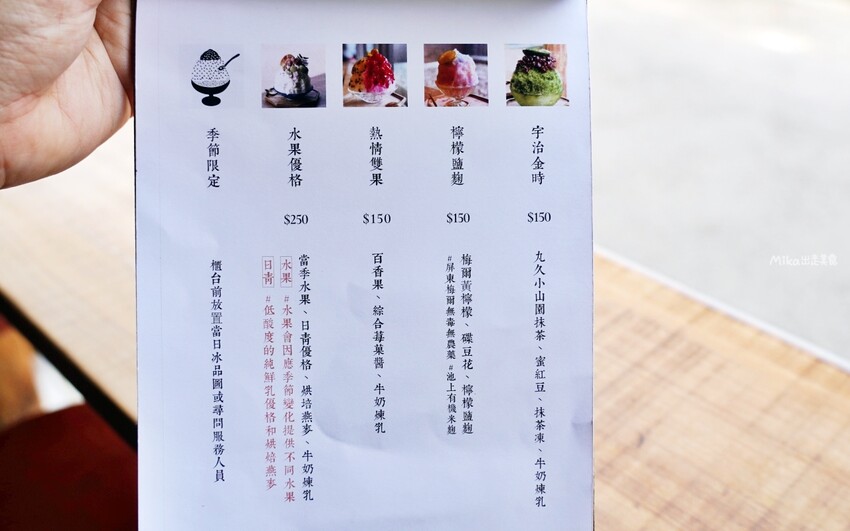 宇治金時
$150
九久小山園抹茶、蜜紅豆、抹茶凍、牛奶煉乳
檸檬鹽麴
$150
梅爾黃檸檬、碟豆花、檸檬鹽麴
#屏東梅爾無毒無農藥 #池上有機米麴
熱情雙果
$150
百香果、綜合莓菓醬、牛奶煉乳
水果優格
$250
當季水果、日青優格、烘焙燕麥、牛奶煉乳
水果 #水果會因應季節變化提供不同水果
日青 #低酸度的純鮮乳優格和烘焙燕麥
季節限定
櫃台前放置當日冰品圖或尋問服務人員
Mika出走美食